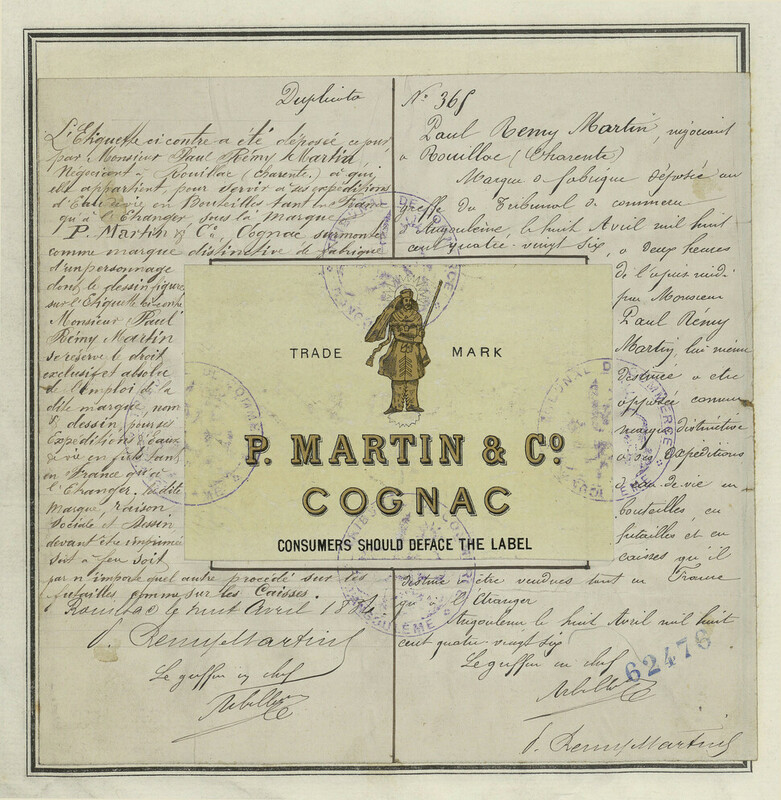 Duplicata
L'Etiquette ci contre a été déposée ce jour
par Monsieur Paul Rémy Martin,
Négociant à Rouillac (Charente) à qui
elle appartient, pour servir à ses expéditions
d'Eau de vie en Bouteilles tant en France
qu'à l'Etranger sous la Marque
P. Martin & Co, Cognac, surmontée
comme marque distinctive de fabrique
d'un personnage
dont le dessin figure
sur l'Etiquette ci contre
Monsieur Paul
Rémy Martin
se réserve le droit
exclusif et absolu
de l'emploi de la
dite marque, nom
& dessin pour ses
Expéditions d'Eaux
de vie en fûts tant
en France qu'à
l'Etranger. La dite
Marque, raison
Sociale et Dessin
devant être imprimés
soit à feu soit
par n'importe quel autre procédé sur les
futailles, comme sur les Caisses.
Rouillac le huit Avril 1886
P. Remy Martin
Le greffier en chef
No 365
Paul Remy Martin, négociant
à Rouillac (Charente)
Marque de fabrique déposée au
greffe du Tribunal de commerce
d'Angoulême, le huit Avril mil huit
cent quatre-vingt six, à deux heures
de l'après midi
par Monsieur
Paul Rémy
Martin, lui même
destinée à être
apposée comme
marque distinctive
à ses expéditions
d'eau de vie en
bouteilles, en
futailles et en
caisses qu'il
destine à être vendues tant en France
qu'à l'Etranger
Angoulême le huit Avril mil huit
cent quatre-vingt six
Le greffier en chef
62476
P. Remy Martin
TRADE MARK
P. MARTIN & Co
COGNAC
CONSUMERS SHOULD DEFACE THE LABEL
TRIBUNAL DE COMMERCE
ANGOULÊME